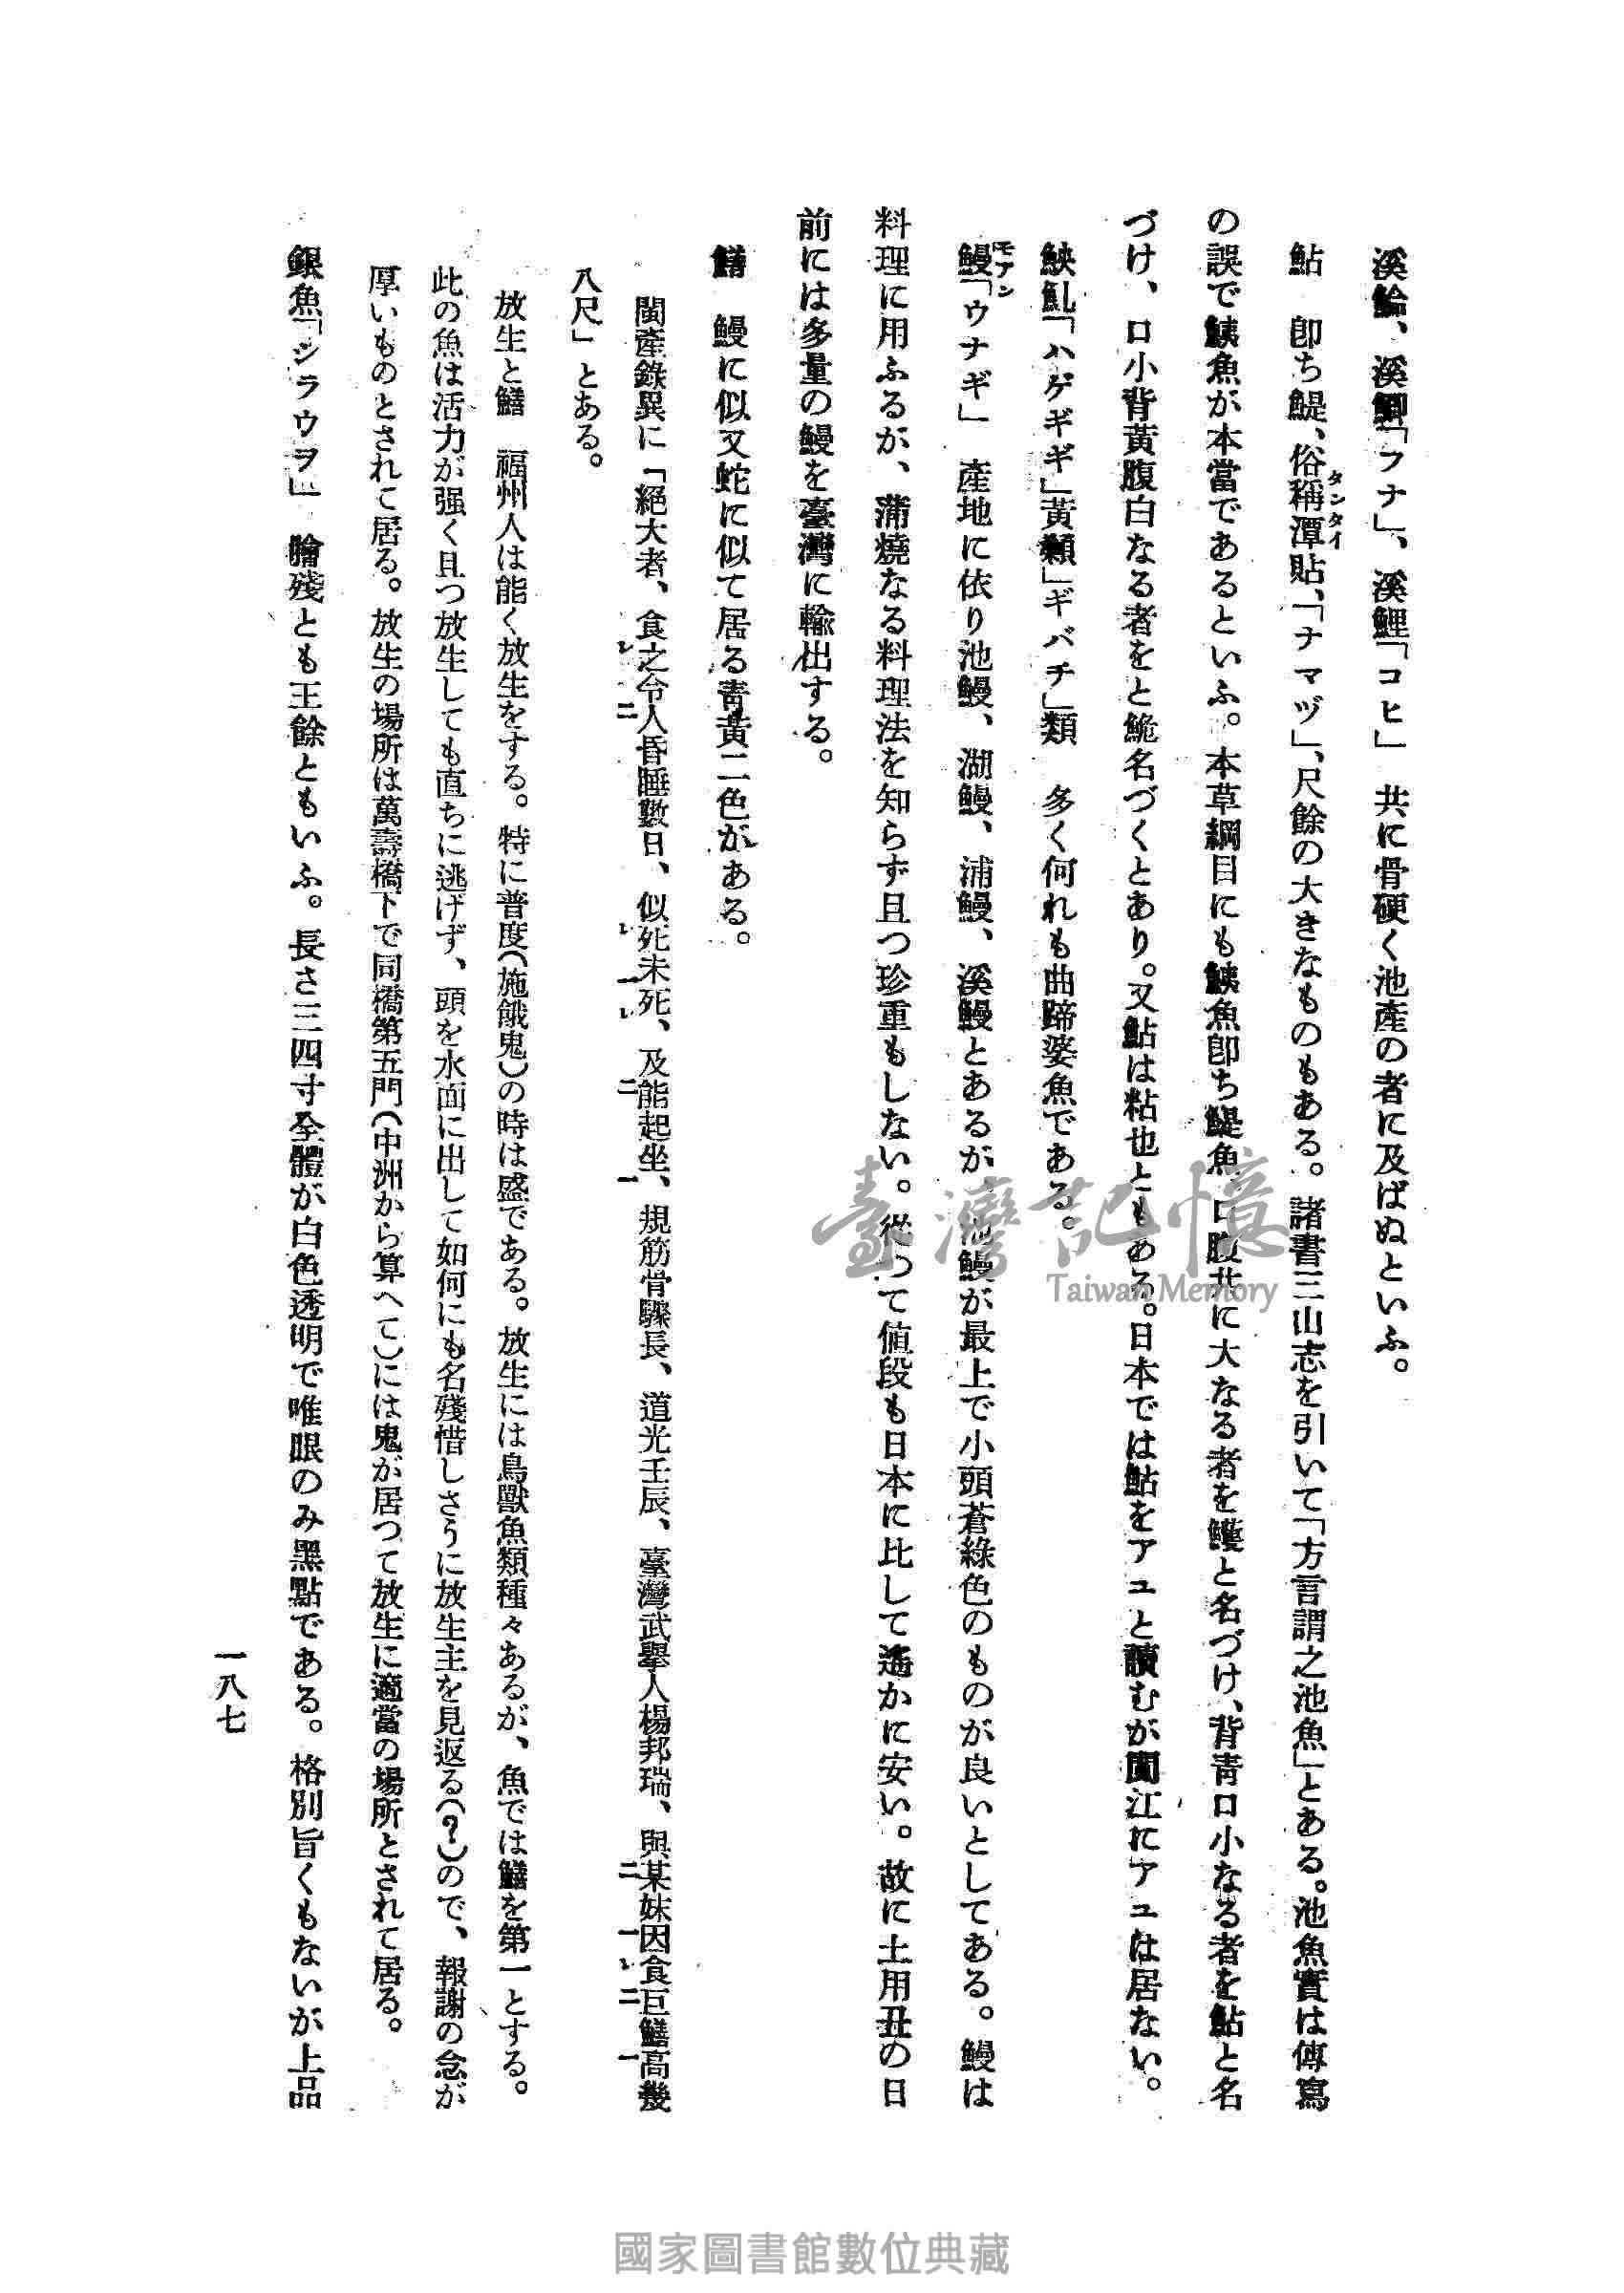 溪鮯、溪鯽「フナ」、溪鯉「コヒ」 共に骨硬く池產の者に及ばぬといふ。
鮎 卽ち鯷、俗稱潭貼、「ナマヅ」、尺餘の大きなものもある。諸書三山志を引いて「方言謂之池魚」とある。池魚實は傳寫
タンタイ
の誤で鮧魚が本當であるといふ。本草綱目にも鮧魚卽ち鯷魚、口腹共に大なる者を鱯と名づけ、背靑口小なる者を鮎と名
づけ、口小背黃腹白なる者をと鮠名づくとあり。又鮎は粘也ともある。日本では鮎をアユと讀むが閩江にアユは居ない。
鉠魟「ハゲギギ」黃顙」ギバチ」類 多く何れも曲蹄婆魚である。
鰻「ウナギ」 產地に依り池鰻、湖鰻、浦鰻、溪鰻とあるが、池鰻が最上で小頭蒼綠色のものが良いとしてある。鰻は
モアン
料理に用ふるが、蒲燒なる料理法を知らず且つ珍重もしない。從つて値段も日本に比して遙かに安い。故に土用丑の日
前には多量の鰻を臺灣に輸出する。
鱔 鰻に似又蛇に似て居る靑黃二色がある。
閩產錄異に「絕大者、食之令人昏睡數日、似死未死、及能起坐、規筋骨驟長、道光壬辰、臺灣武擧人楊邦瑞、與某妹因食巨鱔高幾
レ 二 レ 一レ 二 一 二 一レ 二 一
八尺」とある。
放生と鱔 福州人は能く放生をする。特に普度(施餓鬼)の時は盛である。放生には鳥獸魚類種々あるが、魚では鱔を第一とする。
此の魚は活力が强く且つ放生しても直ちに逃げず、頭を水面に出して如何にも名殘惜しさうに放生主を見返る(?)ので、報謝の念が
厚いものとされて居る。放生の場所は萬壽橋下で同橋第五門(中洲から算へて)には鬼が居つて放生に適當の場所とされて居る。
銀魚「シラウヲ」 膾殘とも王餘ともいふ。長さ三四寸全體が白色透明で唯眼のみ黑點である。格別旨くもないが上品
一八七
臺灣記憶
Taiwan Memory
國家圖書館數位典藏